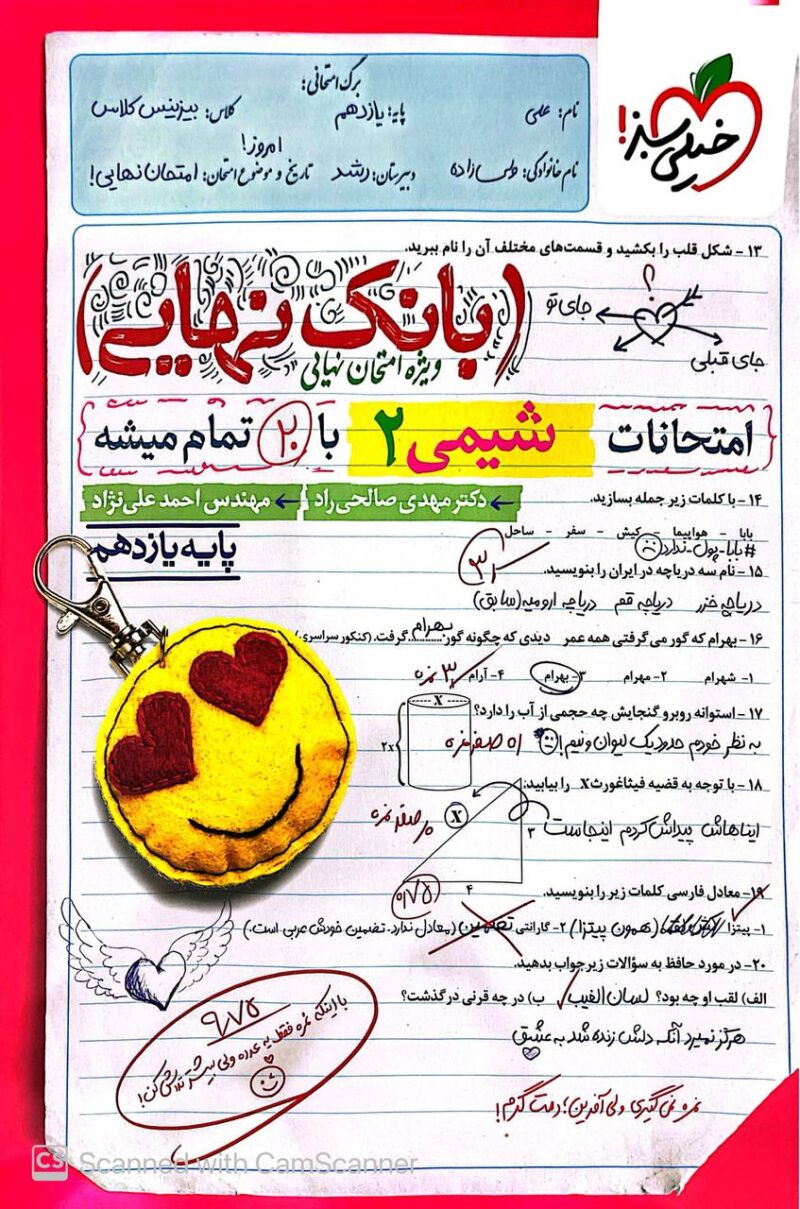 خیلی سبز!
برگ امتحانی:
نام: علی
پایه: یازدهم
کلاس: بیزینس کلاس
امروز!
نام خانوادگی: ولی‌زاده
دبیرستان: رشد
تاریخ و موضوع امتحان: امتحان نهایی!
۱۳ - شکل قلب را بکشید و قسمت‌های مختلف آن را نام ببرید.
؟
جای تو
جای قبلی
(بانک نهایی)
ویژه امتحان نهایی
امتحانات شیمی ۲ با ۲۰ تمام میشه
۱۴ - با کلمات زیر جمله بسازید.
دکتر مهدی صالحی راد ← مهندس احمد علی‌نژاد
بابا - هواپیما - کیش - سفر - ساحل
#بابا-پول-ندارد
پایه یازدهم
۱۵ - نام سه دریاچه در ایران را بنویسید.
دریاچه خزر دریاچه قم دریاچه ارومیه (سابق)
۱۶ - بهرام که گور می‌گرفتی همه عمر دیدی که چگونه گور بهرام گرفت. (کنکور سراسری)
۱- شهرام ۲- مهرام ۳- بهرام ۴- آرام
۱۷ - استوانه روبرو گنجایش چه حجمی از آب را دارد؟
X
2X
به نظر خودم حدود یک لیوان و نیم!
۱۸ - با توجه به قضیه فیثاغورث X را بیابید:
X
ایناهاش پیداش کردم اینجاست
۳
۴
۰/۷۵
۱۹ - معادل فارسی کلمات زیر را بنویسید.
۱- پیتزا (همون پیتزا) ۲- گارانتی تضمین (معادل ندارد. تضمین خودش عربی است.)
۲۰ - در مورد حافظ به سؤالات زیر جواب بدهید.
الف) لقب او چه بود؟ لسان الغیب ب) در چه قرنی درگذشت؟
هرگز نمیرد آنکه دلش زنده شد به عشق
۹/۷۵
با اینکه نمره فقط یه عدده ولی بیشتر تلاش کن!
نمره نمی‌گیری ولی آفرین؛ دمت گرم!
CS Scanned with CamScanner